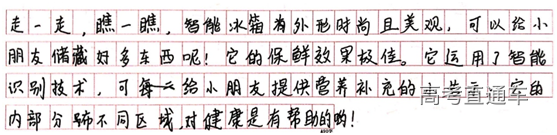 走一走,瞧一瞧,智能冰箱有外形时尚且美观,可以给小
朋友储藏好多东西呢!它的保鲜效果极佳。它运用了智能
识别技术,可每天给小朋友提供营养补充的 它的
内部分为不同区域,对健康是有帮助的哟!
高考直通车